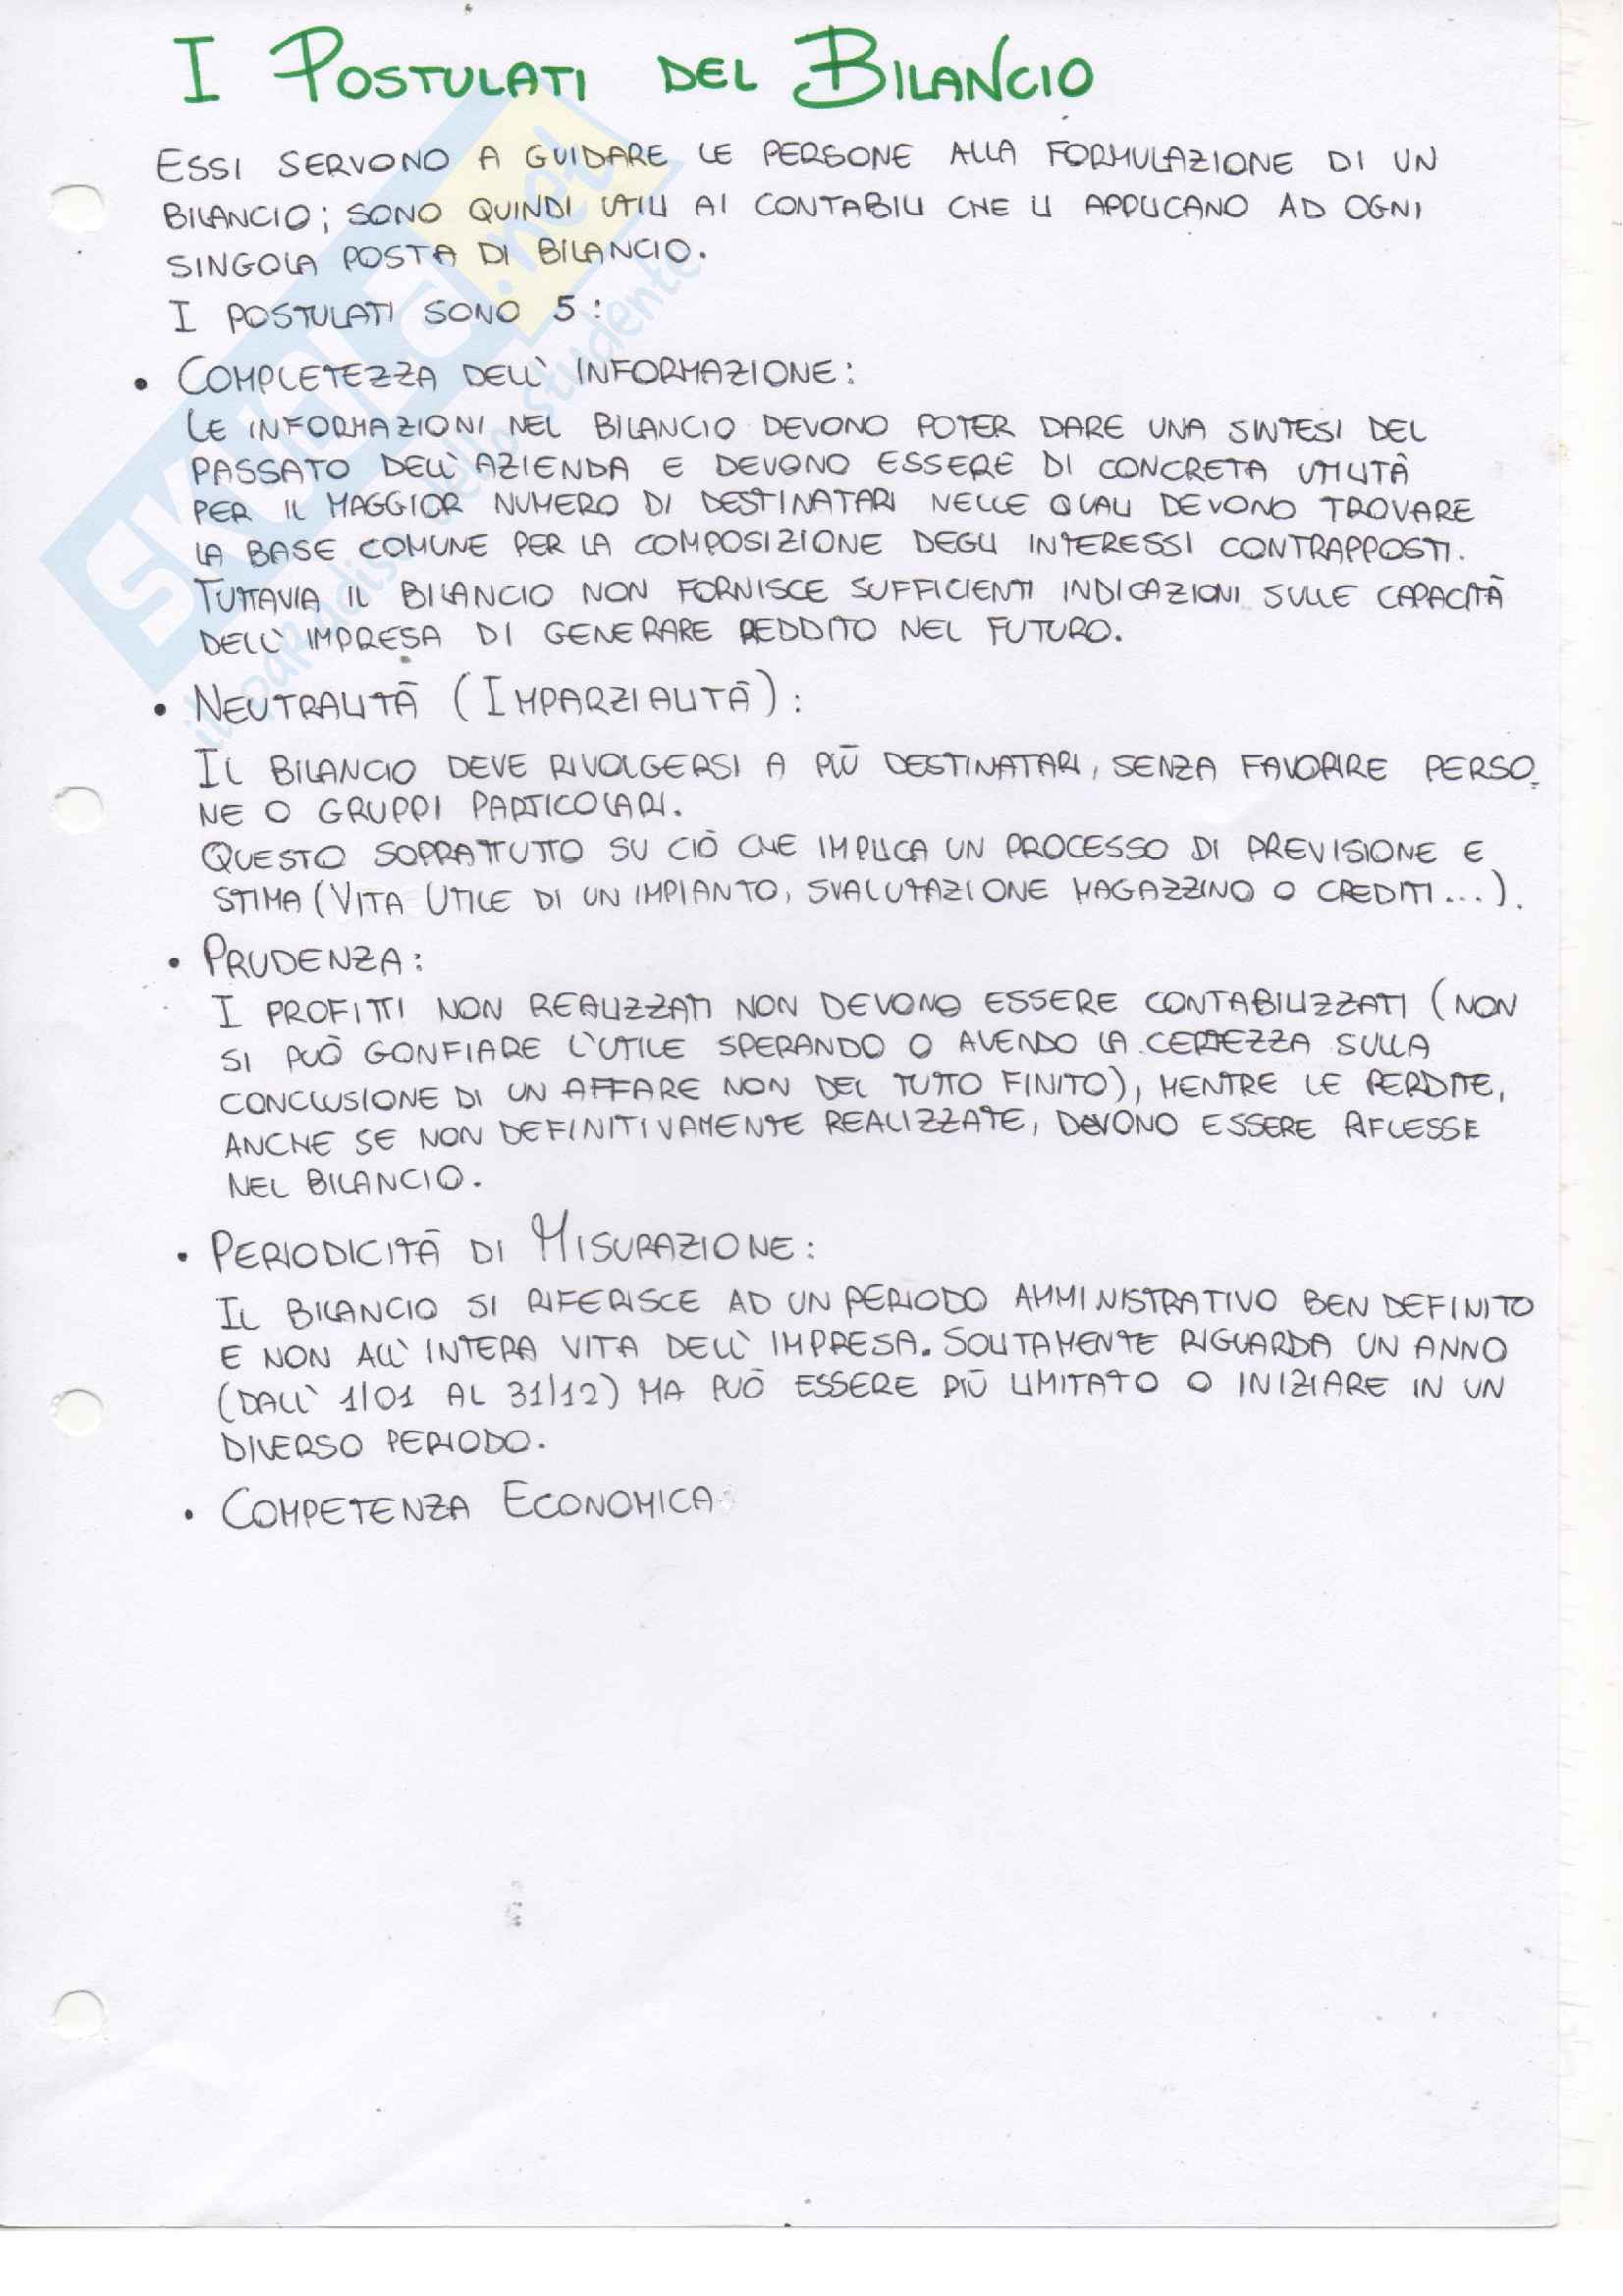 I POSTULATI DEL BILANCIO
ESSI SERVONO A GUIDARE LE PERSONE ALLA FORMULAZIONE DI UN
BILANCIO; SONO QUINDI UTILI AI CONTABILI CHE LI APPLICANO AD OGNI
SINGOLA POSTA DI BILANCIO.
I POSTULATI SONO 5:
• COMPLETEZZA DELL' INFORMAZIONE:
LE INFORMAZIONI NEL BILANCIO DEVONO POTER DARE UNA SINTESI DEL
PASSATO DELL' AZIENDA E DEVONO ESSERE DI CONCRETA UTILITÀ
PER IL MAGGIOR NUMERO DI DESTINATARI NELLE QUALI DEVONO TROVARE
LA BASE COMUNE PER LA COMPOSIZIONE DEGLI INTERESSI CONTRAPPOSTI.
TUTTAVIA IL BILANCIO NON FORNISCE SUFFICIENTI INDICAZIONI SULLE CAPACITÀ
DELL' IMPRESA DI GENERARE REDDITO NEL FUTURO.
• NEUTRALITÀ (IMPARZIALITÀ):
IL BILANCIO DEVE RIVOLGERSI A PIÙ DESTINATARI, SENZA FAVORIRE PERSO_
NE O GRUPPI PARTICOLARI.
QUESTO SOPRATTUTTO SU CIÒ CHE IMPLICA UN PROCESSO DI PREVISIONE E
STIMA (VITA UTILE DI UN IMPIANTO, SVALUTAZIONE MAGAZZINO O CREDITI...).
• PRUDENZA:
I PROFITTI NON REALIZZATI NON DEVONO ESSERE CONTABILIZZATI (NON
SI PUÒ GONFIARE L'UTILE SPERANDO O AVENDO LA CERTEZZA SULLA
CONCLUSIONE DI UN AFFARE NON DEL TUTTO FINITO), MENTRE LE PERDITE,
ANCHE SE NON DEFINITIVAMENTE REALIZZATE, DEVONO ESSERE RIFLESSE
NEL BILANCIO.
• PERIODICITÀ DI MISURAZIONE:
IL BILANCIO SI RIFERISCE AD UN PERIODO AMMINISTRATIVO BEN DEFINITO
E NON ALL' INTERA VITA DELL' IMPRESA. SOLITAMENTE RIGUARDA UN ANNO
(DALL' 1/01 AL 31/12) MA PUÒ ESSERE PIÙ LIMITATO O INIZIARE IN UN
DIVERSO PERIODO.
• COMPETENZA ECONOMICA: